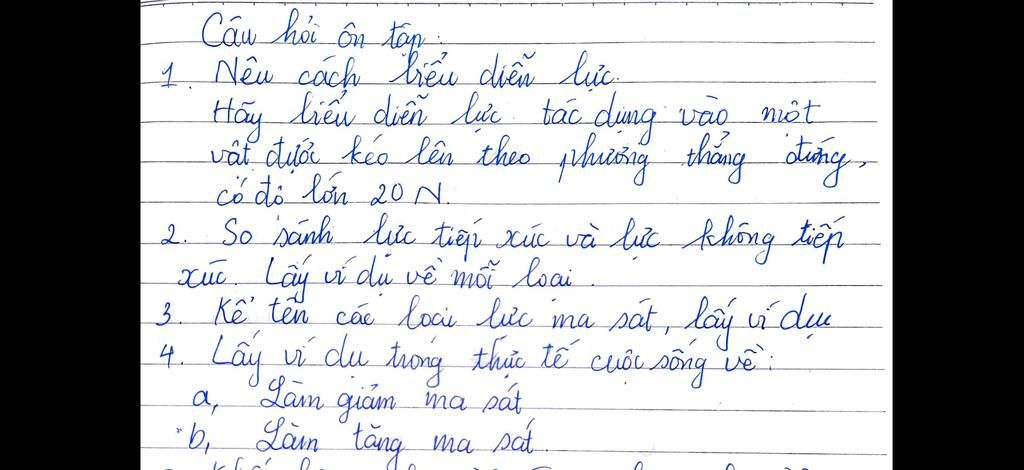 Câu hỏi ôn tập:
1. Nêu cách biểu diễn lực.
Hãy biểu diễn lực tác dụng vào một
vật được kéo lên theo phương thẳng đứng,
có độ lớn 20 N.
2. So sánh lực tiếp xúc và lực không tiếp
xúc. Lấy ví dụ về mỗi loại.
3. Kể tên các loại lực ma sát, lấy ví dụ
4. Lấy ví dụ trong thực tế cuộc sống về:
a, Làm giảm ma sát
b, Làm tăng ma sát.